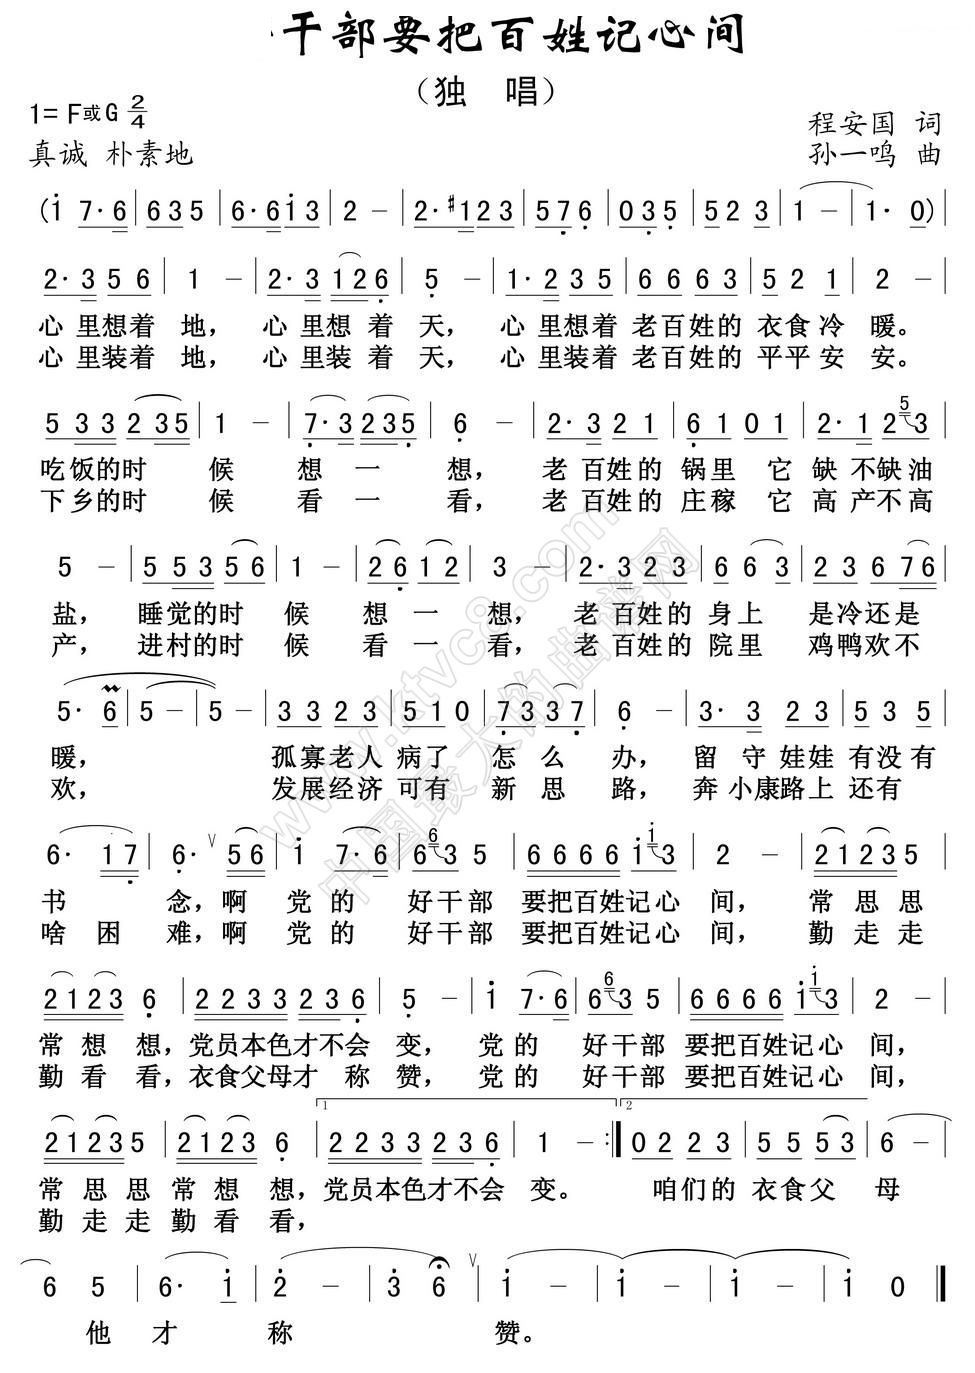 干部要把百姓记心间
（独 唱）
1= F或G 2/4
程安国 词
真诚 朴素地
孙一鸣 曲
(i 7·6|635|6·6i3|2 -|2·#123|576|035|523|1 -|1· 0)|
2·356|1 -|2·3126|5 -|1·235|6663|521|2 -|
心里想着 地， 心里想 着 天， 心里想着 老百姓的 衣食冷 暖。
心里装着 地， 心里装 着 天， 心里装着 老百姓的 平平安 安。
533235|1 -|7·3235|6 -|2·321|6101|2·1253|
吃饭的时 候 想 一 想， 老 百姓的 锅里 它 缺 不缺油
下乡的时 候 看 一 看， 老 百姓的 庄稼 它 高 产不高
5 -|55356|1 -|2612|3 -|2·323|663|23676|
盐， 睡觉的时 候 想 一 想， 老 百姓的 身上 是冷还是
产， 进村的时 候 看 一 看， 老 百姓的 院里 鸡鸭欢不
5· 6|5 -|5 -|3323|510|7337|6 -|3· 3 23|535|
暖， 孤寡老人 病了 怎 么 办， 留 守 娃娃 有没有
欢， 发展经济 可有 新 思 路， 奔 小康路上 还有
6· 17|6· ∨56|i 7·6|6635|6666ii3|2 -|21235|
书 念，啊 党 的 好干部 要把百姓记心 间， 常 思思
啥 困 难，啊 党 的 好干部 要把百姓记心 间， 勤 走走
21236|2233236|5 -|i 7·6|6635|6666ii3|2 -|
常 想 想，党员本色才不会 变， 党 的 好干部 要把百姓记心 间，
勤 看 看，衣食父母才 称 赞， 党 的 好干部 要把百姓记心 间，
1 2
21235|21236|2233236|1 -:|0223|5553|6 -|
常 思 思 常 想 想，党员本色才不会 变。 咱们的 衣食父 母
勤 走 走 勤 看 看，
6 5|6· i|2 -|3 6 ∨|i -|i -|i -|i 0‖
他 才 称 赞。
www.ktvc8.com
中国最大的曲谱网